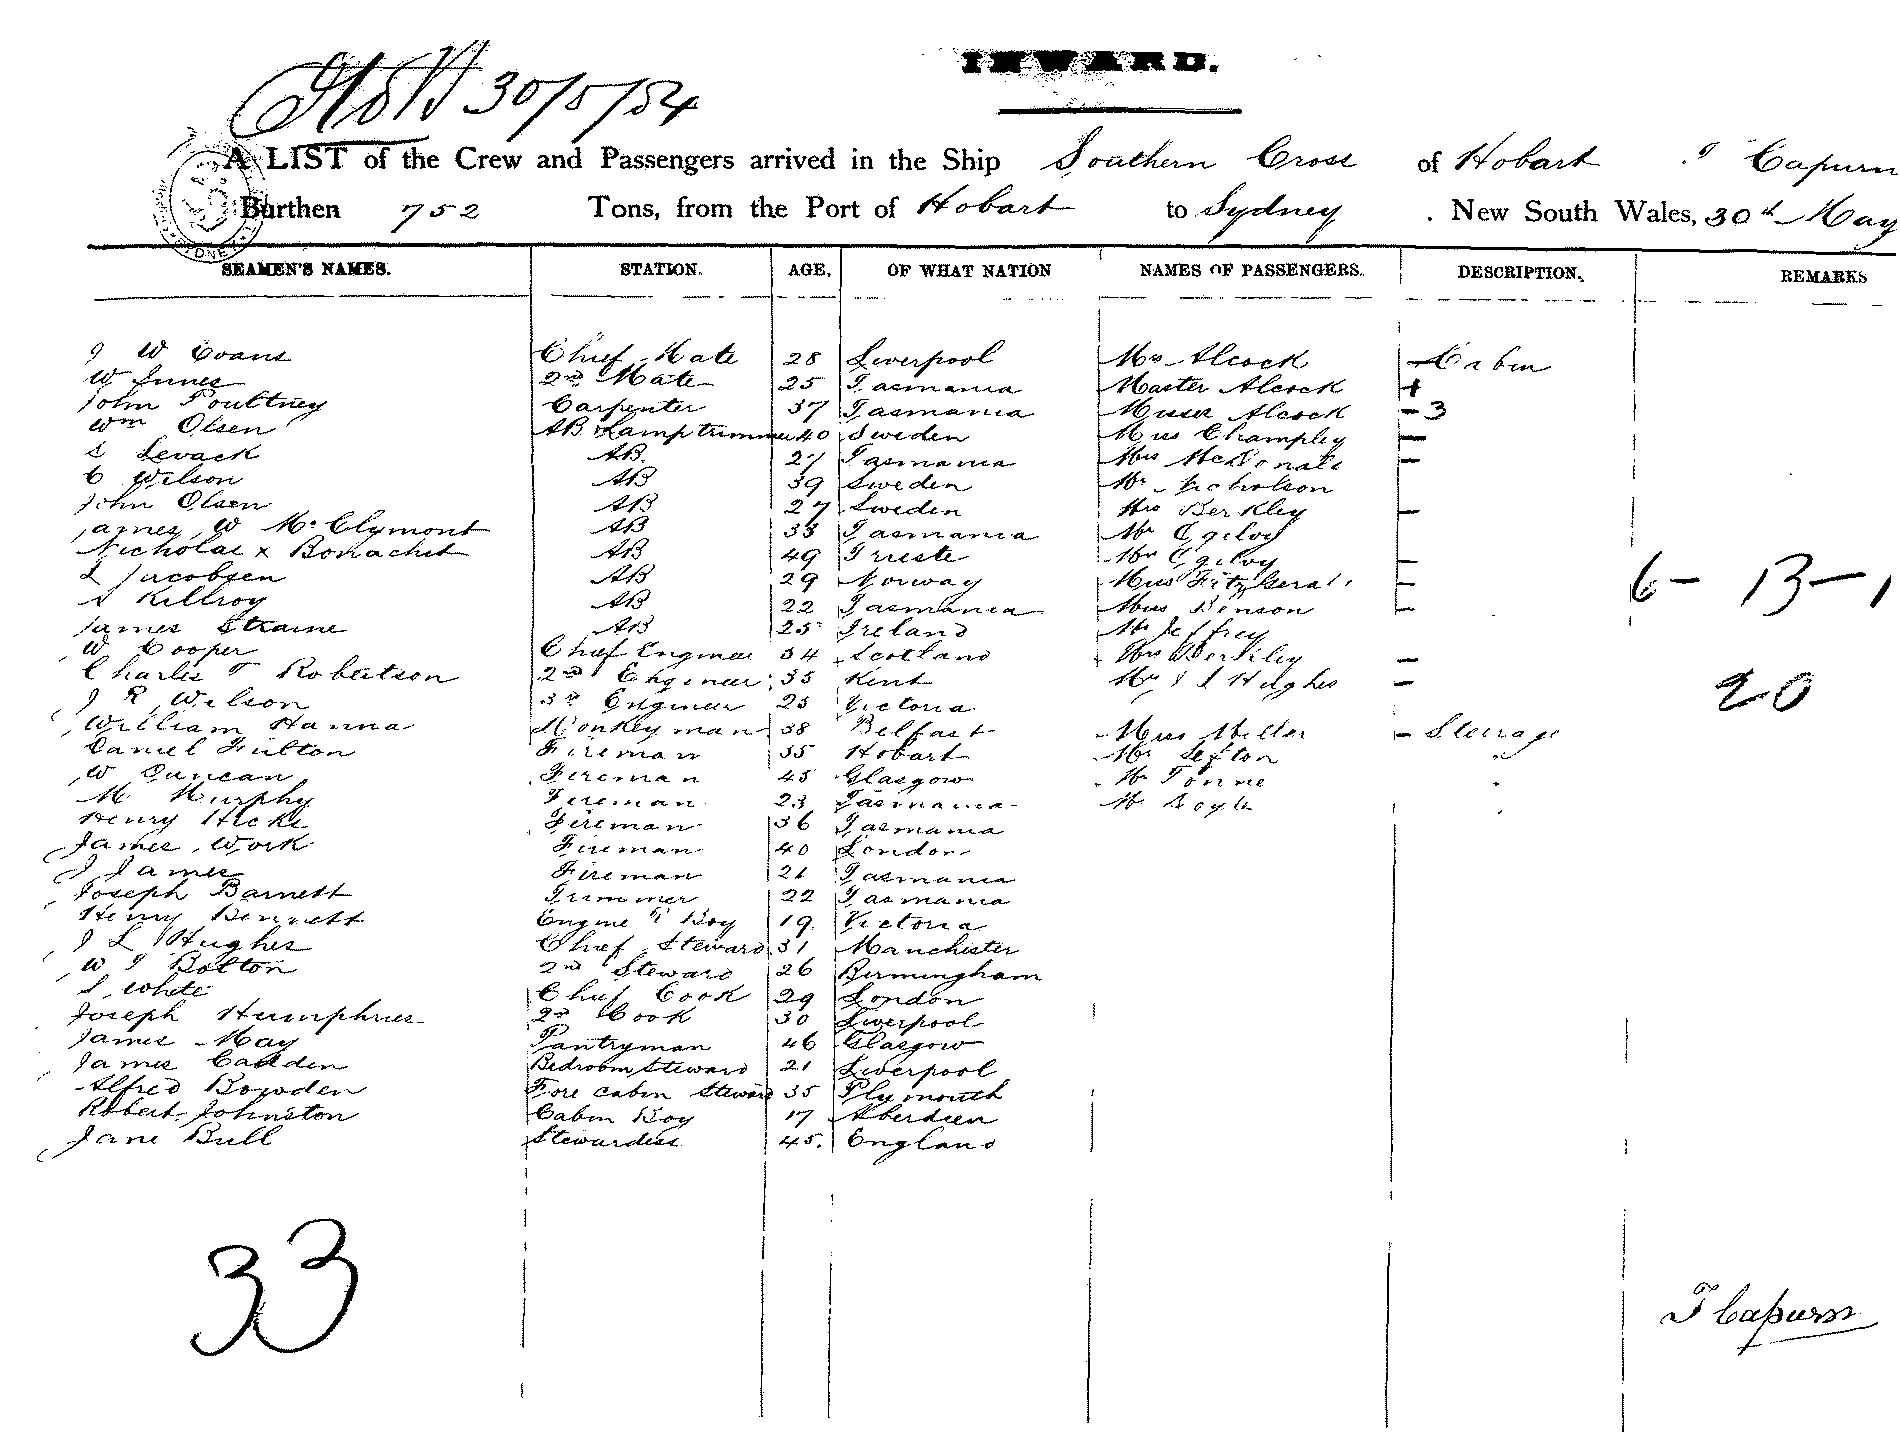 INWARD.
30/5/54
A LIST of the Crew and Passengers arrived in the Ship Southern Cross of Hobart T Capurn
Burthen 752 Tons, from the Port of Hobart to Sydney . New South Wales, 30th May
SEAMEN'S NAMES. STATION. AGE. OF WHAT NATION NAMES OF PASSENGERS. DESCRIPTION. REMARKS
J W Evans Chief Mate 28 Liverpool Mr Alcock Cabin
W Innes 2nd Mate 25 Tasmania Master Alcock +
John Poultney Carpenter 37 Tasmania Misses Alcock - 3
Wm Olsen AB Lamptrimmer 40 Sweden Miss Champley -
S Levack AB. 27 Tasmania Mrs McDonald -
C Wilson AB 39 Sweden Mr Nicholson
John Olsen AB 27 Sweden Mrs Berkley -
James W McClymont AB 33 Tasmania Mr Ogilvy
Nicholas x Bonachit AB 49 Trieste Mrs Ogilvy -
L Jacobsen AB 29 Norway Miss Fitzgerald - 6 - 13 - 1
A Killroy AB 22 Tasmania Miss Benson -
James Straine AB 25 Ireland Mr Jeffrey
W Cooper Chief Engineer 34 Scotland Mrs Berkley -
Charles T Robertson 2nd Engineer 35 Kent J J Hughes - 20
J R Wilson 3rd Engineer 25 Victoria
William Hanna Donkeyman 38 Belfast Miss Miller - Steerage
Daniel Fulton Fireman 35 Hobart Mr Sefton "
W Duncan Fireman 45 Glasgow Mr Tonne "
M Murphy Fireman 23 Tasmania Mr Boyle "
Henry Hicks Fireman 36 Tasmania
James Work Fireman 40 London
J James Fireman 21 Tasmania
Joseph Barnett Trimmer 22 Tasmania
Henry Bennett Engine R Boy 19 Victoria
J L Hughes Chief Steward 31 Manchester
W J Bolton 2nd Steward 26 Birmingham
S White Chief Cook 29 London
Joseph Humphries 2nd Cook 30 Liverpool
James May Pantryman 46 Glasgow
James Cadden Bedroom Steward 21 Liverpool
Alfred Bowden Fore cabin Steward 35 Plymouth
Robert Johnston Cabin Boy 17 Aberdeen
Jane Bull Stewardess 45. England
33
T Capurn